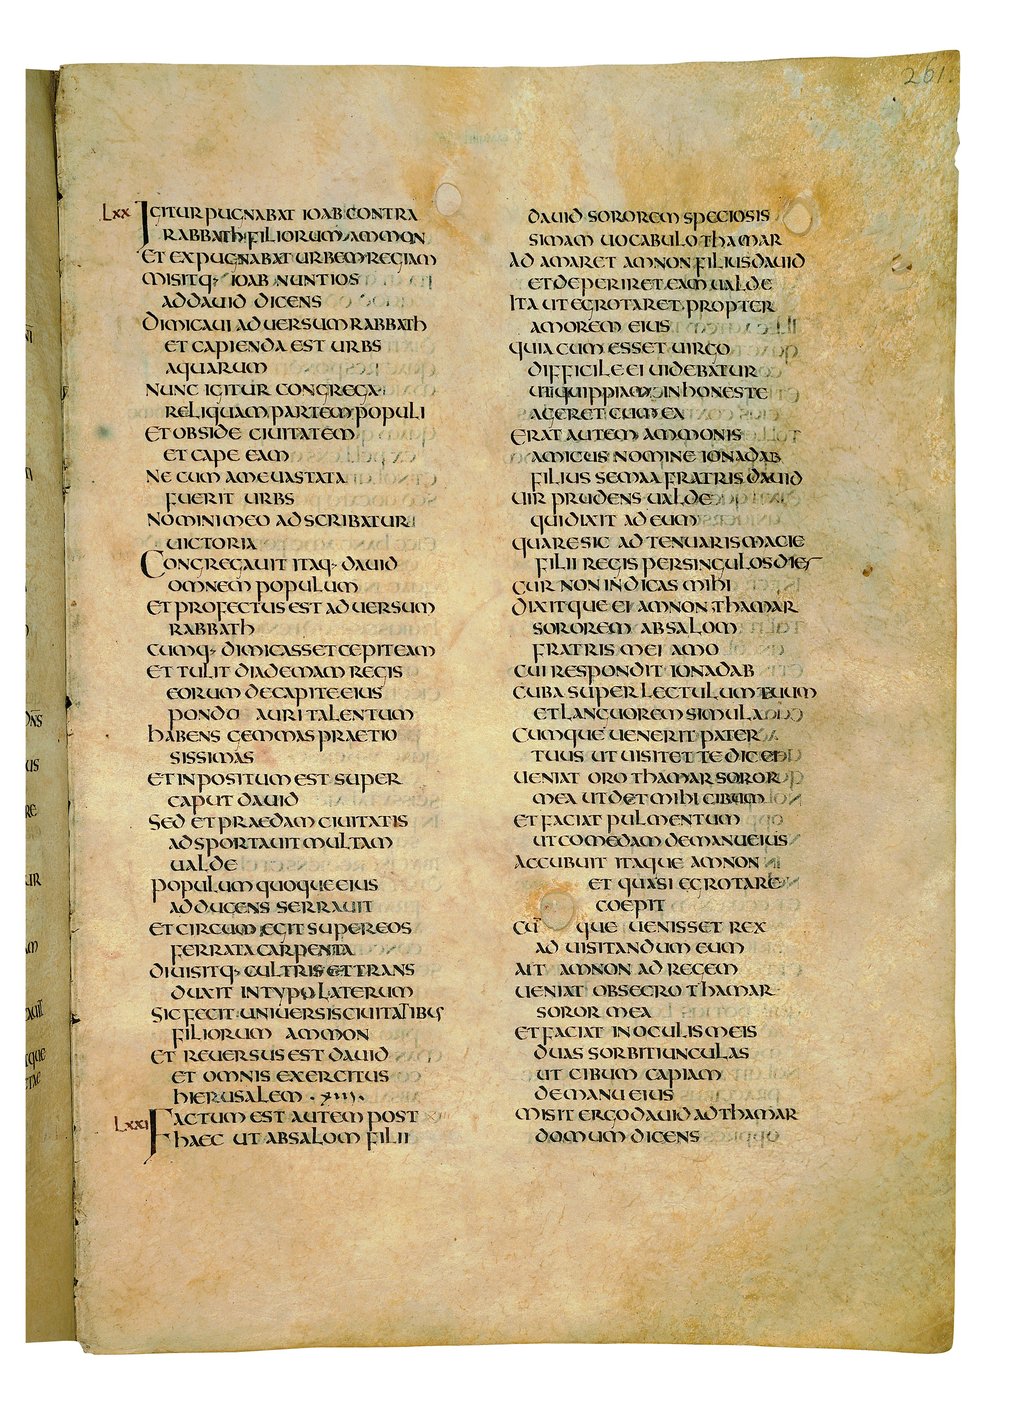 261.
LXX IGITUR PUGNABAT IOAB CONTRA
RABBATH FILIORUM AMMON
ET EXPUGNABAT URBEM REGIAM
MISITQ· IOAB NUNTIOS
AD DAUID DICENS
DIMICAUI ADUERSUM RABBATH
ET CAPIENDA EST URBS
AQUARUM
NUNC IGITUR CONGREGA
RELIQUAM PARTEM POPULI
ET OBSIDE CIUITATEM
ET CAPE EAM
NE CUM A ME UASTATA
FUERIT URBS
NOMINI MEO ADSCRIBATUR
UICTORIA
CONGREGAUIT ITAQ· DAUID
OMNEM POPULUM
ET PROFECTUS EST ADUERSUM
RABBATH
CUMQ· DIMICASSET CEPIT EAM
ET TULIT DIADEMAM REGIS
EORUM DE CAPITE EIUS
PONDO AURI TALENTUM
HABENS GEMMAS PRAETIO
SISSIMAS
ET INPOSITUM EST SUPER
CAPUT DAUID
SED ET PRAEDAM CIUITATIS
ADSPORTAUIT MULTAM
UALDE
POPULUM QUOQUE EIUS
ADDUCENS SERRAUIT
ET CIRCUM EGIT SUPER EOS
FERRATA CARPENTA
DIUISITQ· CULTRIS ET TRANS
DUXIT IN TYPO LATERUM
SIC FECIT UNIUERSIS CIUITATIBUS
FILIORUM AMMON
ET REUERSUS EST DAUID
ET OMNIS EXERCITUS
HIERUSALEM
LXXI FACTUM EST AUTEM POST
HAEC UT ABSALOM FILII
DAUID SOROREM SPECIOSIS
SIMAM UOCABULO THAMAR
AD AMARET AMNON FILIUS DAUID
ET DEPERIRET EAM UALDE
ITA UT EGROTARET PROPTER
AMOREM EIUS
QUIA CUM ESSET UIRGO
DIFFICILE EI UIDEBATUR
UT QUIPPIAM INHONESTE
AGERET CUM EA
ERAT AUTEM AMMONIS
AMICUS NOMINE IONADAB
FILIUS SEMAA FRATRIS DAUID
UIR PRUDENS UALDE
QUI DIXIT AD EUM
QUARE SIC ADTENUARIS MACIE
FILII REGIS PER SINGULOS DIES
CUR NON INDICAS MIHI
DIXITQUE EI AMNON THAMAR
SOROREM ABSALOM
FRATRIS MEI AMO
CUI RESPONDIT IONADAB
CUBA SUPER LECTULUM TUUM
ET LANGUOREM SIMULA
CUMQUE UENERIT PATER
TUUS UT UISITET TE DIC EI
UENIAT ORO THAMAR SOROR
MEA UT DET MIHI CIBUM
ET FACIAT PULMENTUM
UT COMEDAM DE MANU EIUS
ACCUBUIT ITAQUE AMNON
ET QUASI EGROTARE
COEPIT
CŪ QUE UENISSET REX
AD UISITANDUM EUM
AIT AMNON AD REGEM
UENIAT OBSECRO THAMAR
SOROR MEA
ET FACIAT IN OCULIS MEIS
DUAS SORBITIUNCULAS
UT CIBUM CAPIAM
DE MANU EIUS
MISIT ERGO DAUID AD THAMAR
DOMUM DICENS